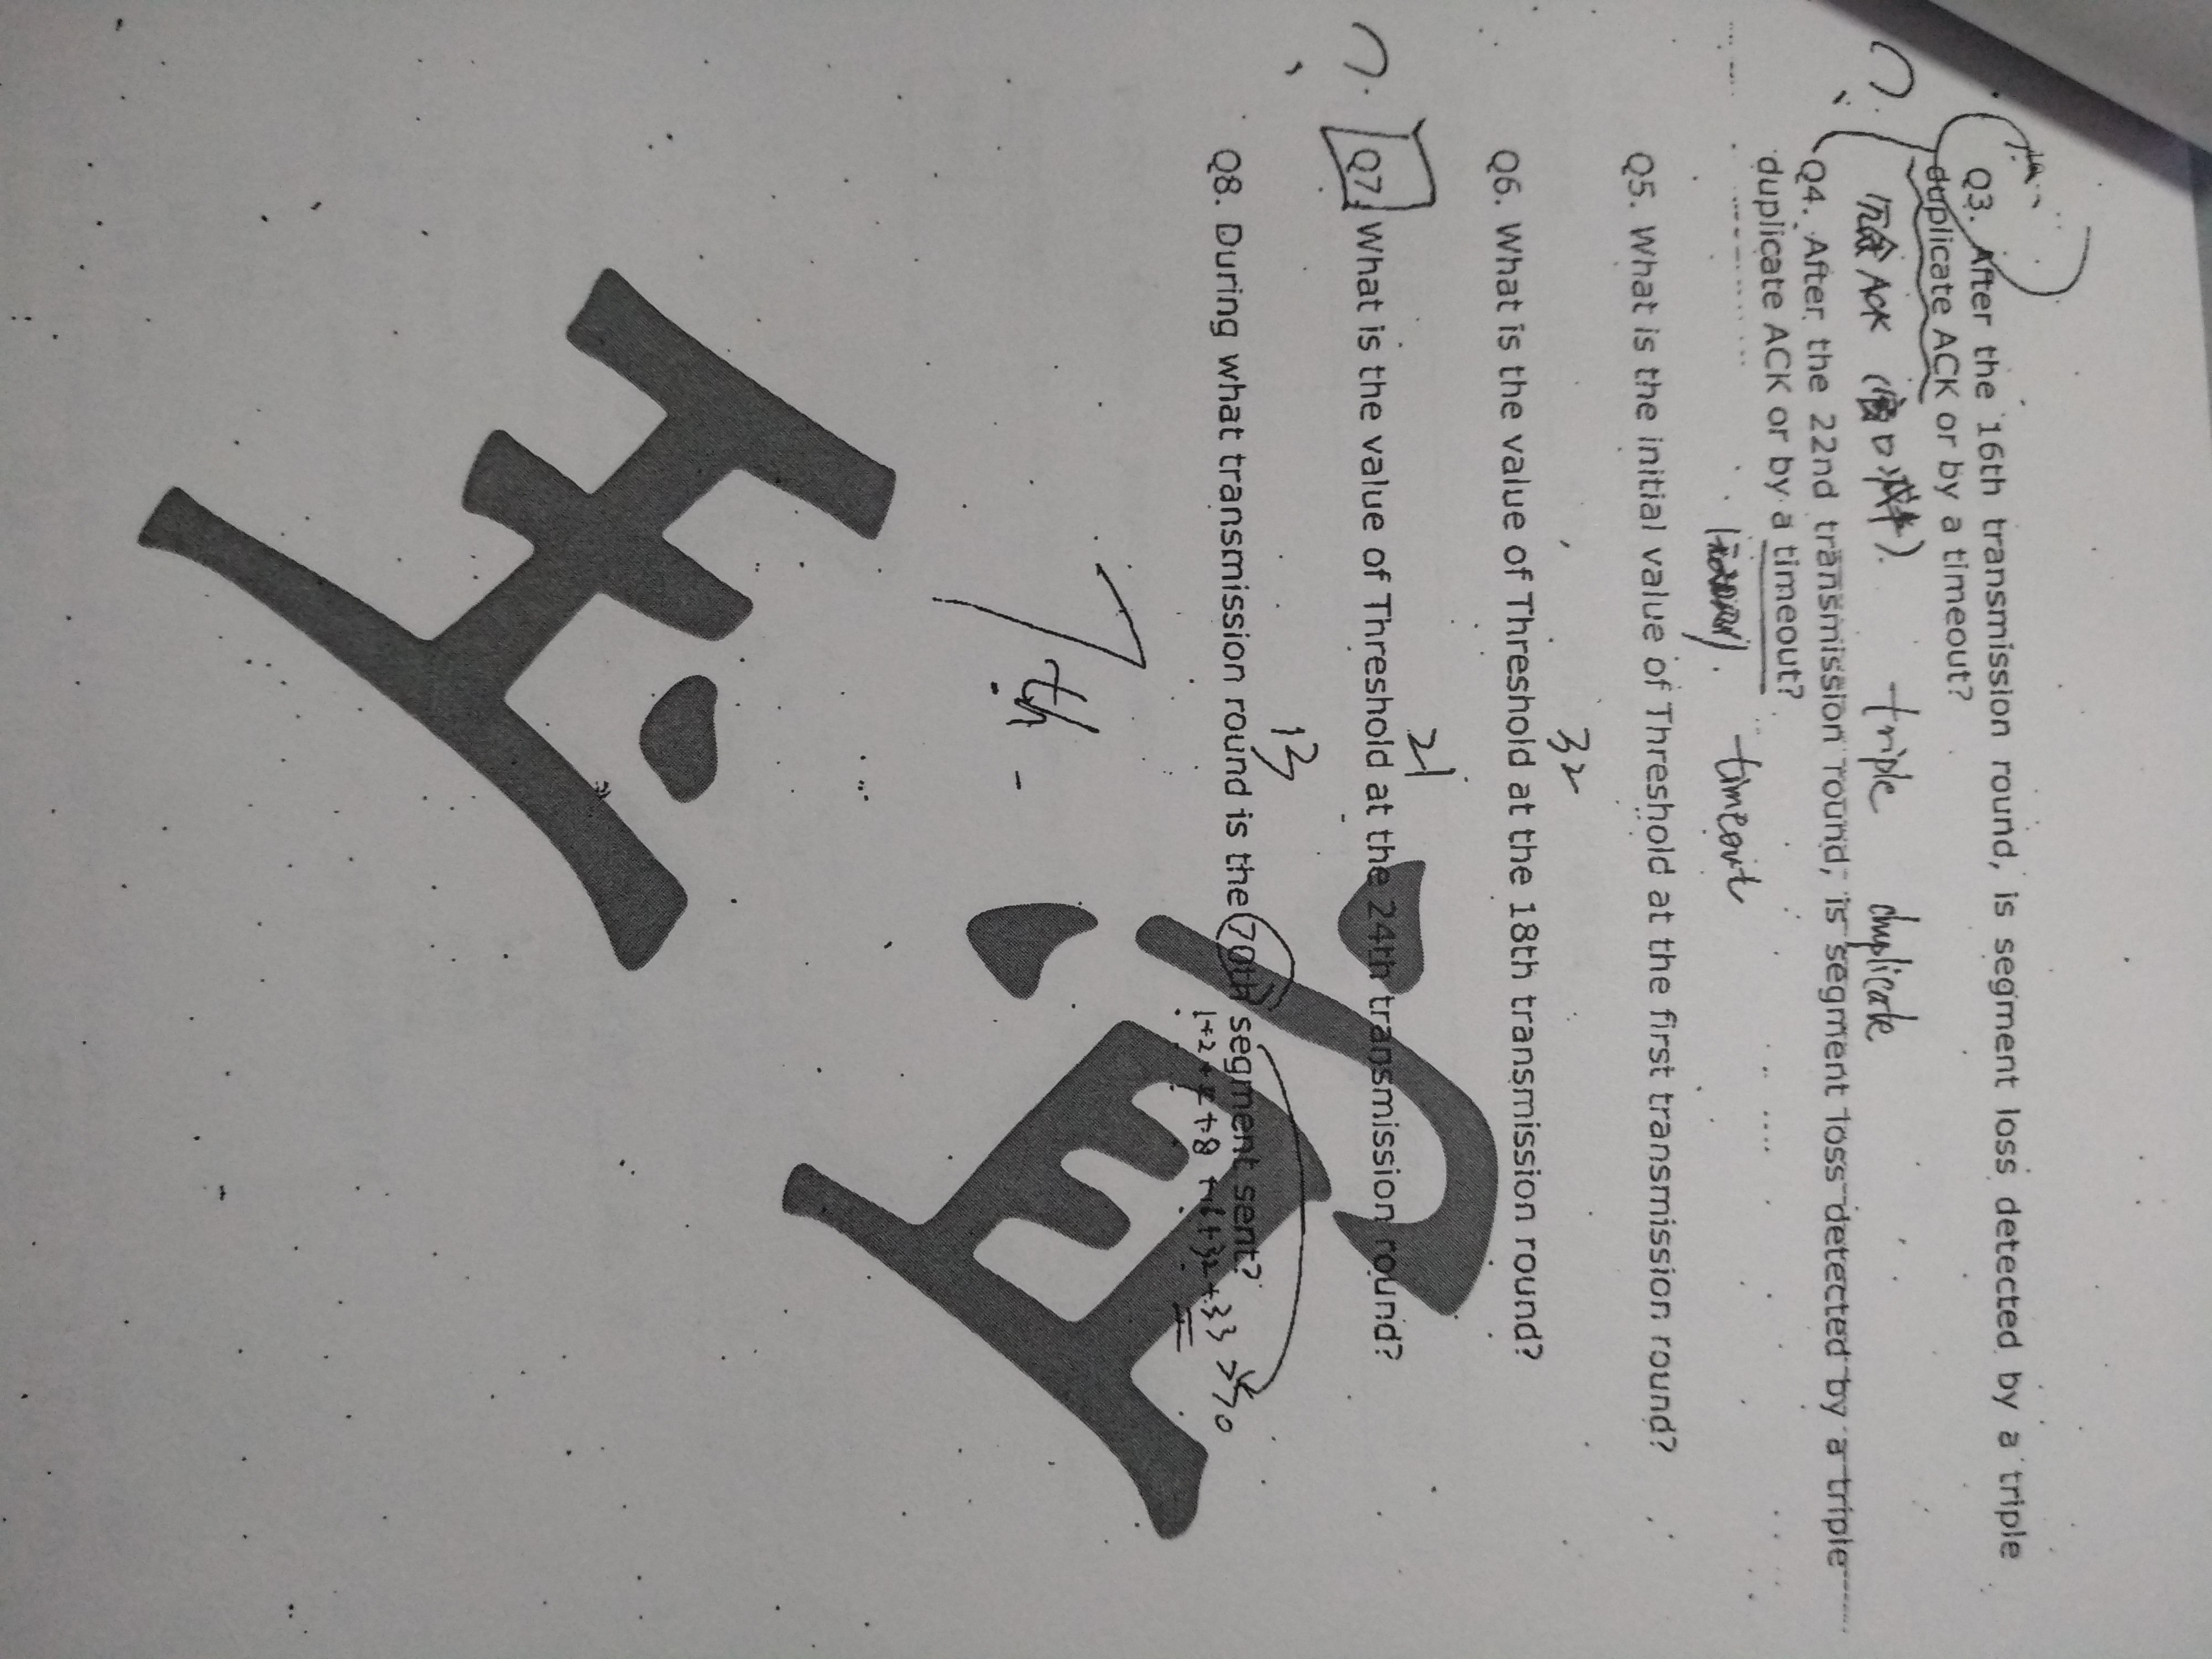 Q3. After the 16th transmission round, is segment loss detected by a triple
duplicate ACK or by a timeout?
冗余ACK (窗口减半). triple duplicate
Q4. After the 22nd transmission round, is segment loss detected by a triple
duplicate ACK or by a timeout?
timeout
Q5. What is the initial value of Threshold at the first transmission round?
32
Q6. What is the value of Threshold at the 18th transmission round?
21
?. Q7. What is the value of Threshold at the 24th transmission round?
13
Q8. During what transmission round is the 70th segment sent?
1+2+4+8+16+32+33 >70
7th